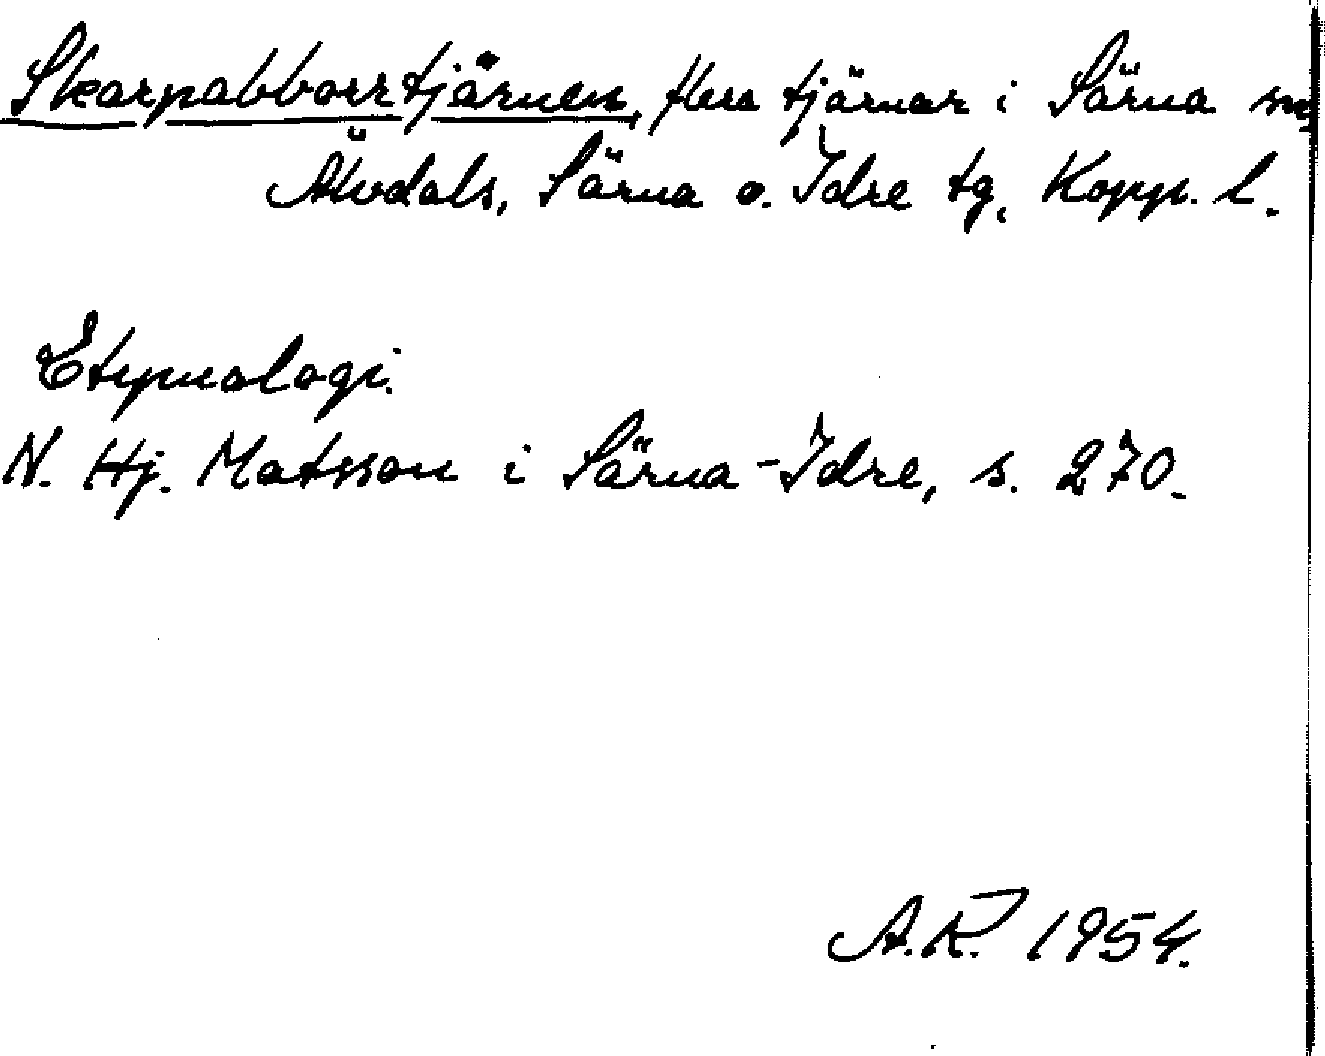 Skarpabborrtjärnen, flera tjärnar i Särna sn,
Älvdals, Särna o. Idre tg, Kopp. l.
Etymologi.
N. Hj. Matsson i Särna-Idre, s. 270.
A.K. 1954.